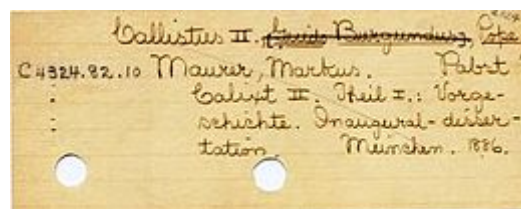 Callistus II. (Guido Burgundus), Pope
C4324.82.10 Maurer, Markus. Pabst
Calixt II. Theil I.: Vorge-
schichte. Inaugural-disser-
tation. München. 1886.